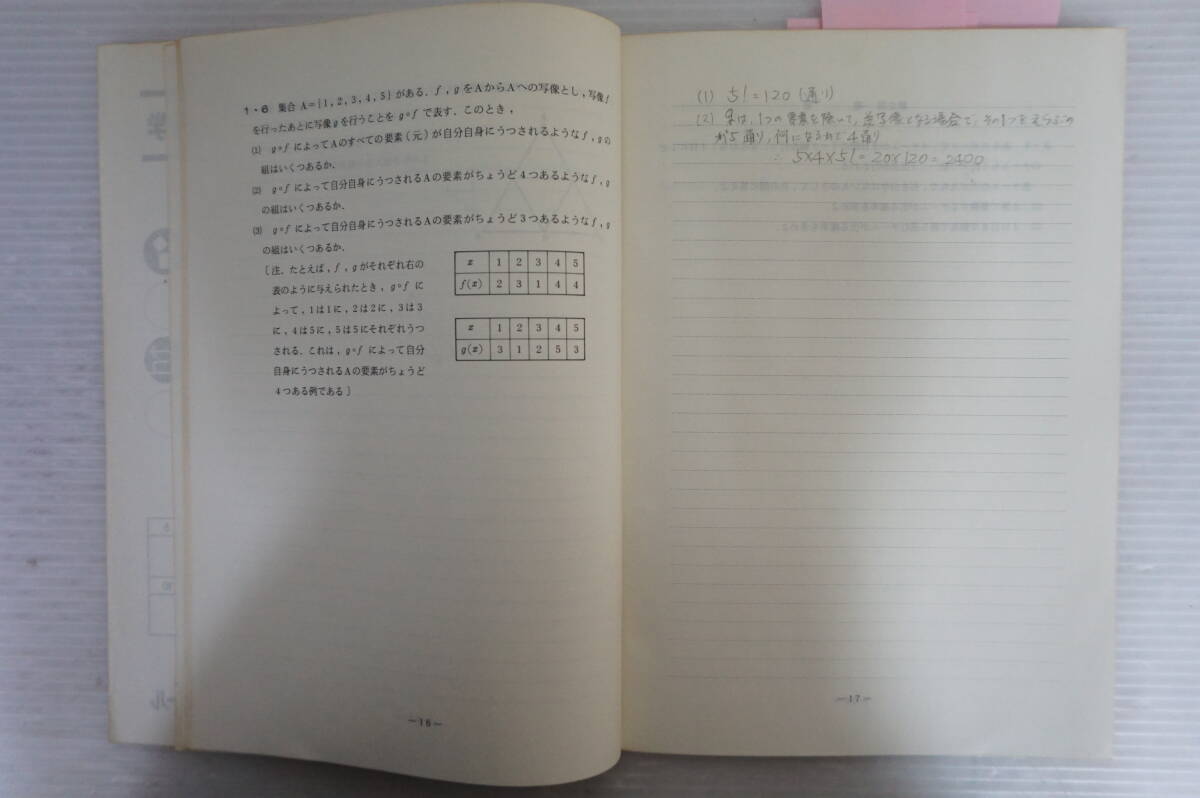 1・6 集合 A={1, 2, 3, 4, 5} がある. f, g をAからAへの写像とし, 写像 f
を行ったあとに写像 g を行うことを g∘f で表す. このとき,
(1) g∘f によってAのすべての要素(元)が自分自身にうつされるような f, g の
組はいくつあるか.
(2) g∘f によって自分自身にうつされるAの要素がちょうど4つあるような f, g
の組はいくつあるか.
(3) g∘f によって自分自身にうつされるAの要素がちょうど3つあるような f, g
の組はいくつあるか.
〔注. たとえば, f, g がそれぞれ右の
表のように与えられたとき, g∘f に
よって, 1は1に, 2は2に, 3は3
に, 4は5に, 5は5にそれぞれうつ
される. これは, g∘f によって自分
自身にうつされるAの要素がちょうど
4つある例である〕
x 1 2 3 4 5
f(x) 2 3 1 4 4
x 1 2 3 4 5
g(x) 3 1 2 5 3
―16―
(1) 5!=120 (通り)
(2) gは, 1つの要素を除って, 写像となる場合で, その1つをえらぶの
が5通り, 何になるかで4通り
∴ 5×4×5!=20×120=2400
―17―